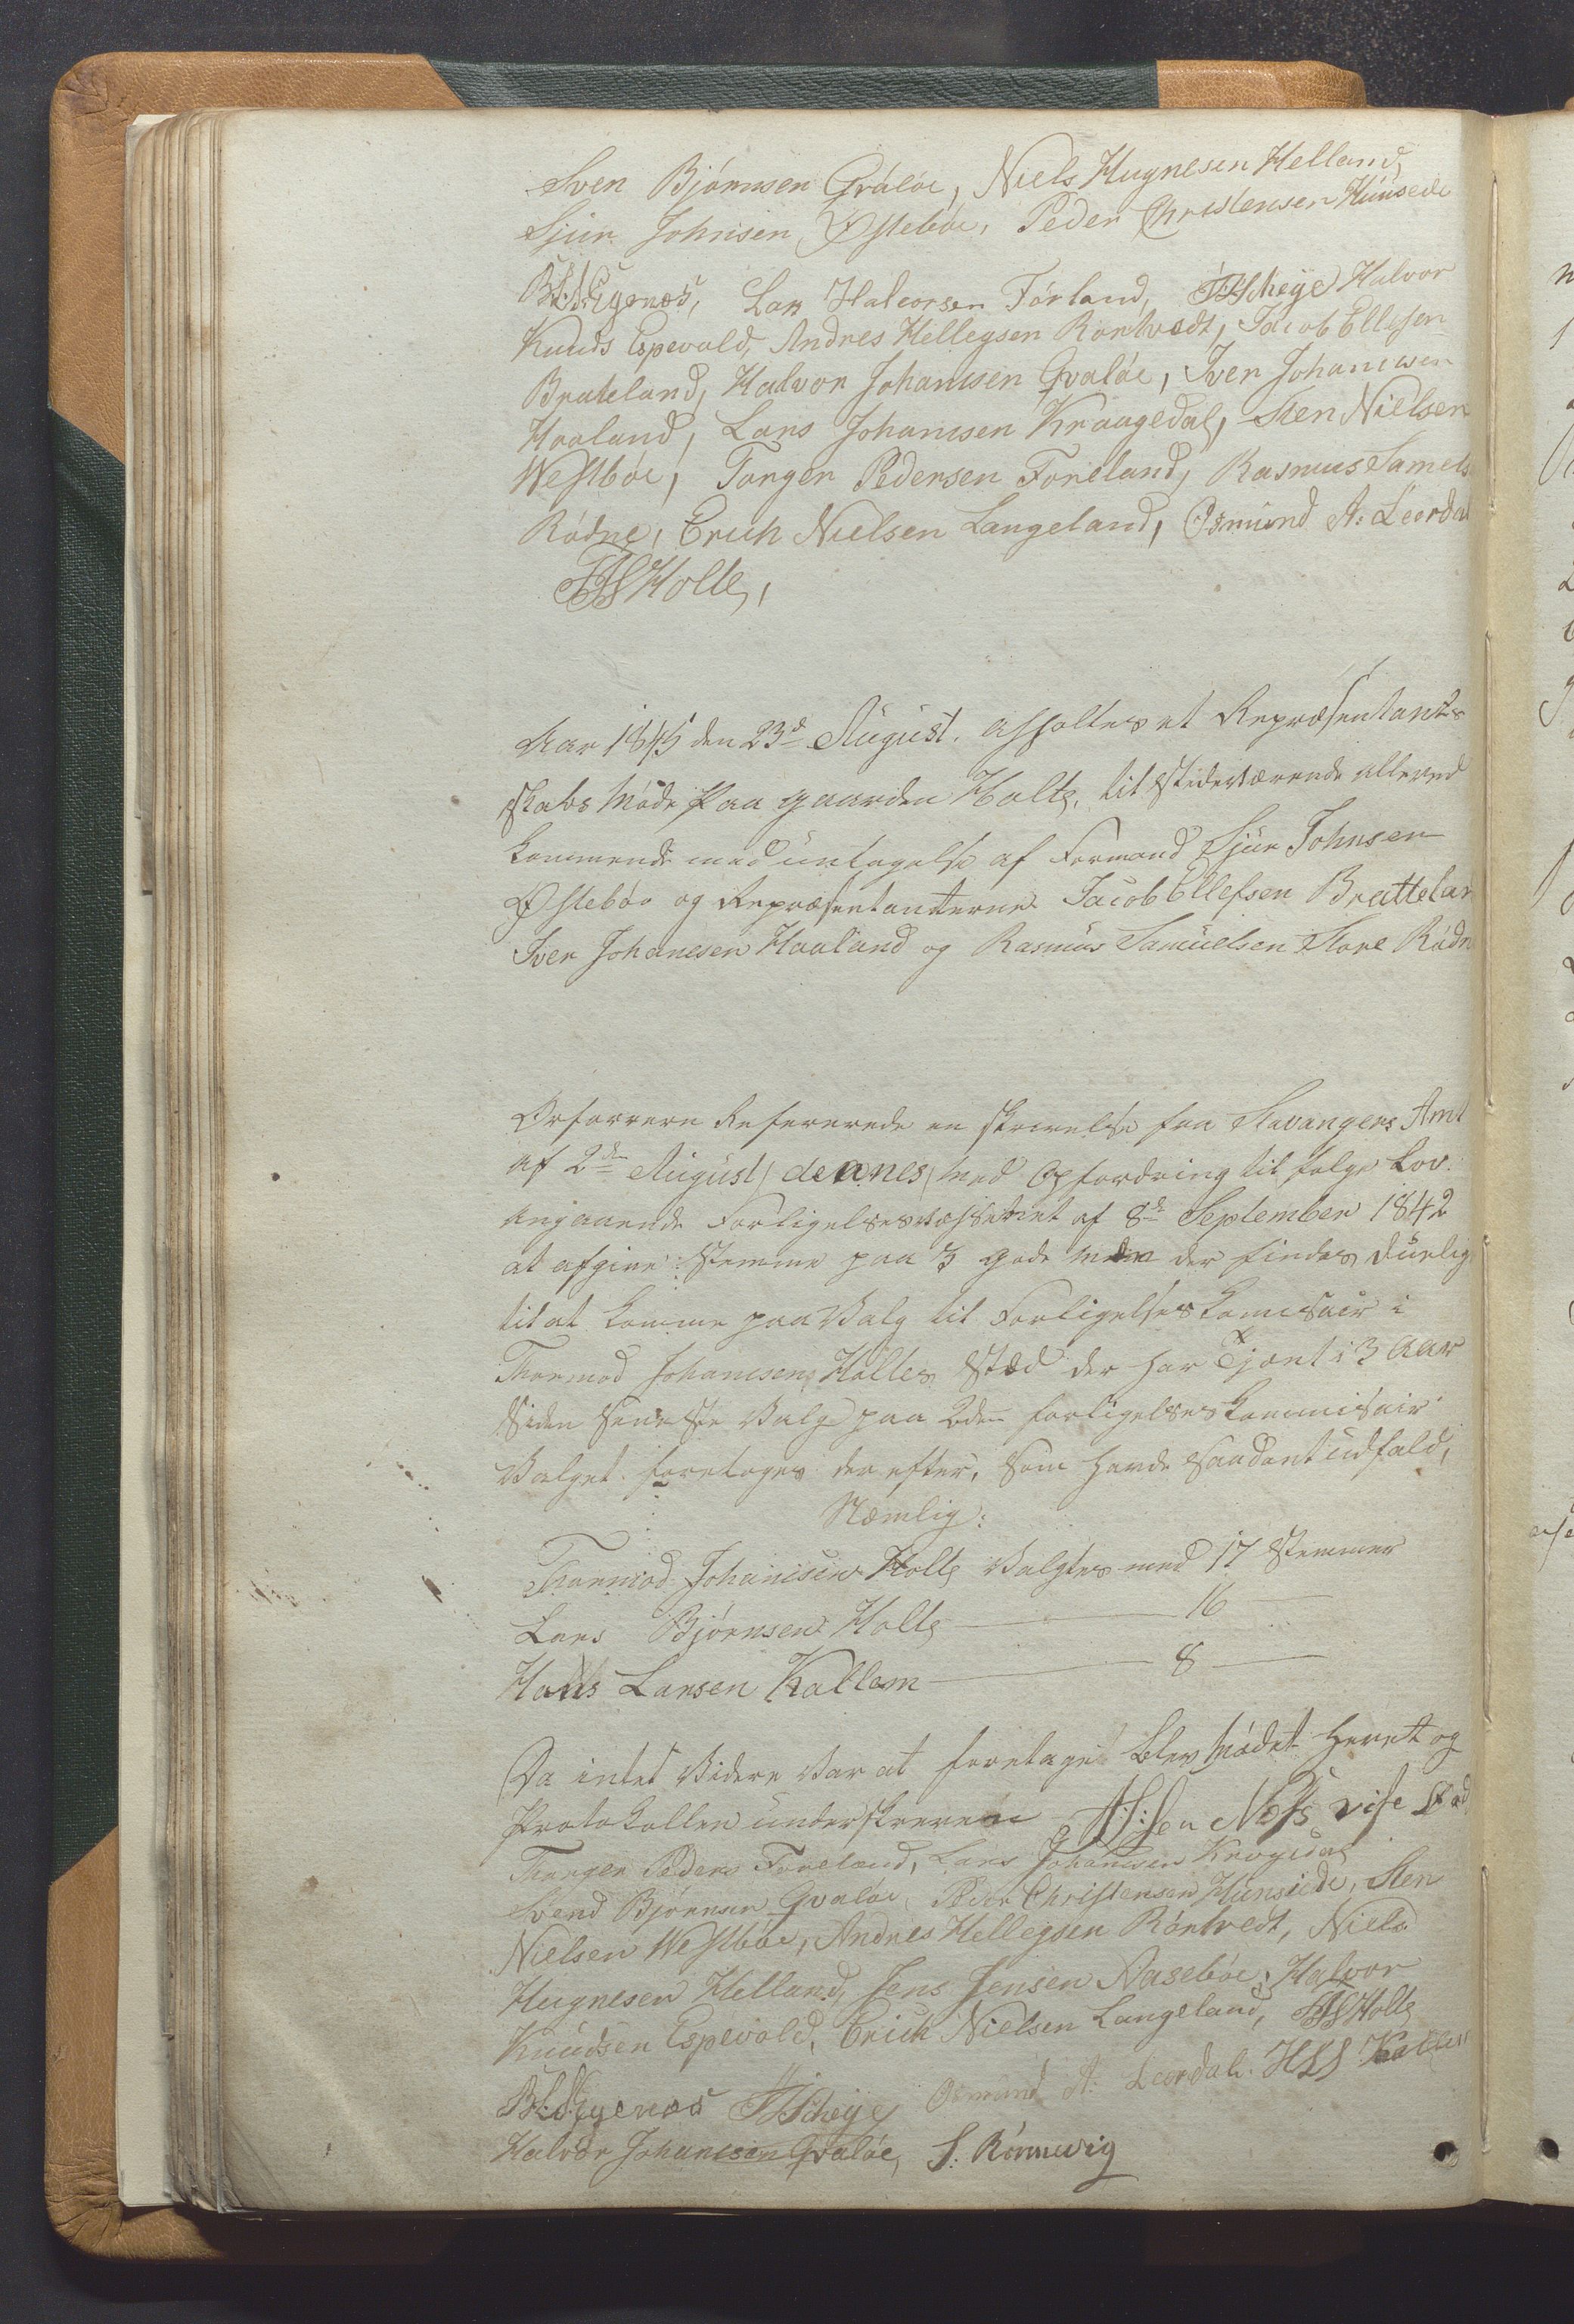 Sven Bjørnsen Qvaløe, Niels Hugnesen Helland,
Sjur Johnsen Østebøe, Peder Christensen Hunsede
B:L:Egenæs, Lars Halvorsen Førland, Halvor
Knuds Espevold, Andres Hellegsen Rørtvedt, Jacob Ellefsen
Bratteland, Halvor Johannsen Qvaløe, Iver Johannesen
Haaland, Lars Johannsen Kraagedal, Sten Nielsen
Westbøe, Torger Pedersen Foreland, Rasmus Samels
Rødne, Erich Nielsen Langeland, Osmund A: Leerdal
Holte,
Aar 1845 den 23d August. afholtes et Repræsentant-
skabs Møde paa gaarden Holte, tilstedeværende alleved
kommende med untagelse af Formand Sjur Johnsen
Østebøe og Repræsentanterne Jacob Ellefsen Brattelan
Iver Johannesen Haaland og Rasmus Samuelsen Store Rødn
Orføreren Refererede en skrivelse fra Stavangers Amt
af 2den August / deanes / med Opfordring til følge Lov
angaaende Forligelsesvæssenet af 8de September 1842
at afgive Stemme paa 3 gode Men der findes duelig
til at komme paa Valg til Forligelseskomisair i
Thormod Johannesen Holtes Stæd der har Tjent i 3 Aar
Siden seneste Valg paa 2den forligelseskommisair
Valget foretoges der efter, som havde saadant udfald,
Nemlig:
Thormod Johannesen Holte Valgtes med 17 Stemmer
Lars Bjørnsen Holte — 16 —
Hans Larsen Kallem — 8 —
Da intet Videre Var at foretage blev Mødet hevet og
Protokollen underskreven Næss
Thorger Peders Foreland, Lars Johannesen Krogedal
Svend Bjørnsen Qvaløe, Peder Christensen Hunsede, Sten
Nielsen Westbøe, Andres Hellegsen Rørtvedt, Niels
Hugnesen Helland, Jens Jensen Aasebøe, Halvor
Knudsen Espevold, Erich Nielsen Langeland, Holte
B:L:Egenæs Osmund A: Leerdal. HLS Kallem
Halvor Johannesen Qvaløe, S. Rønnevig